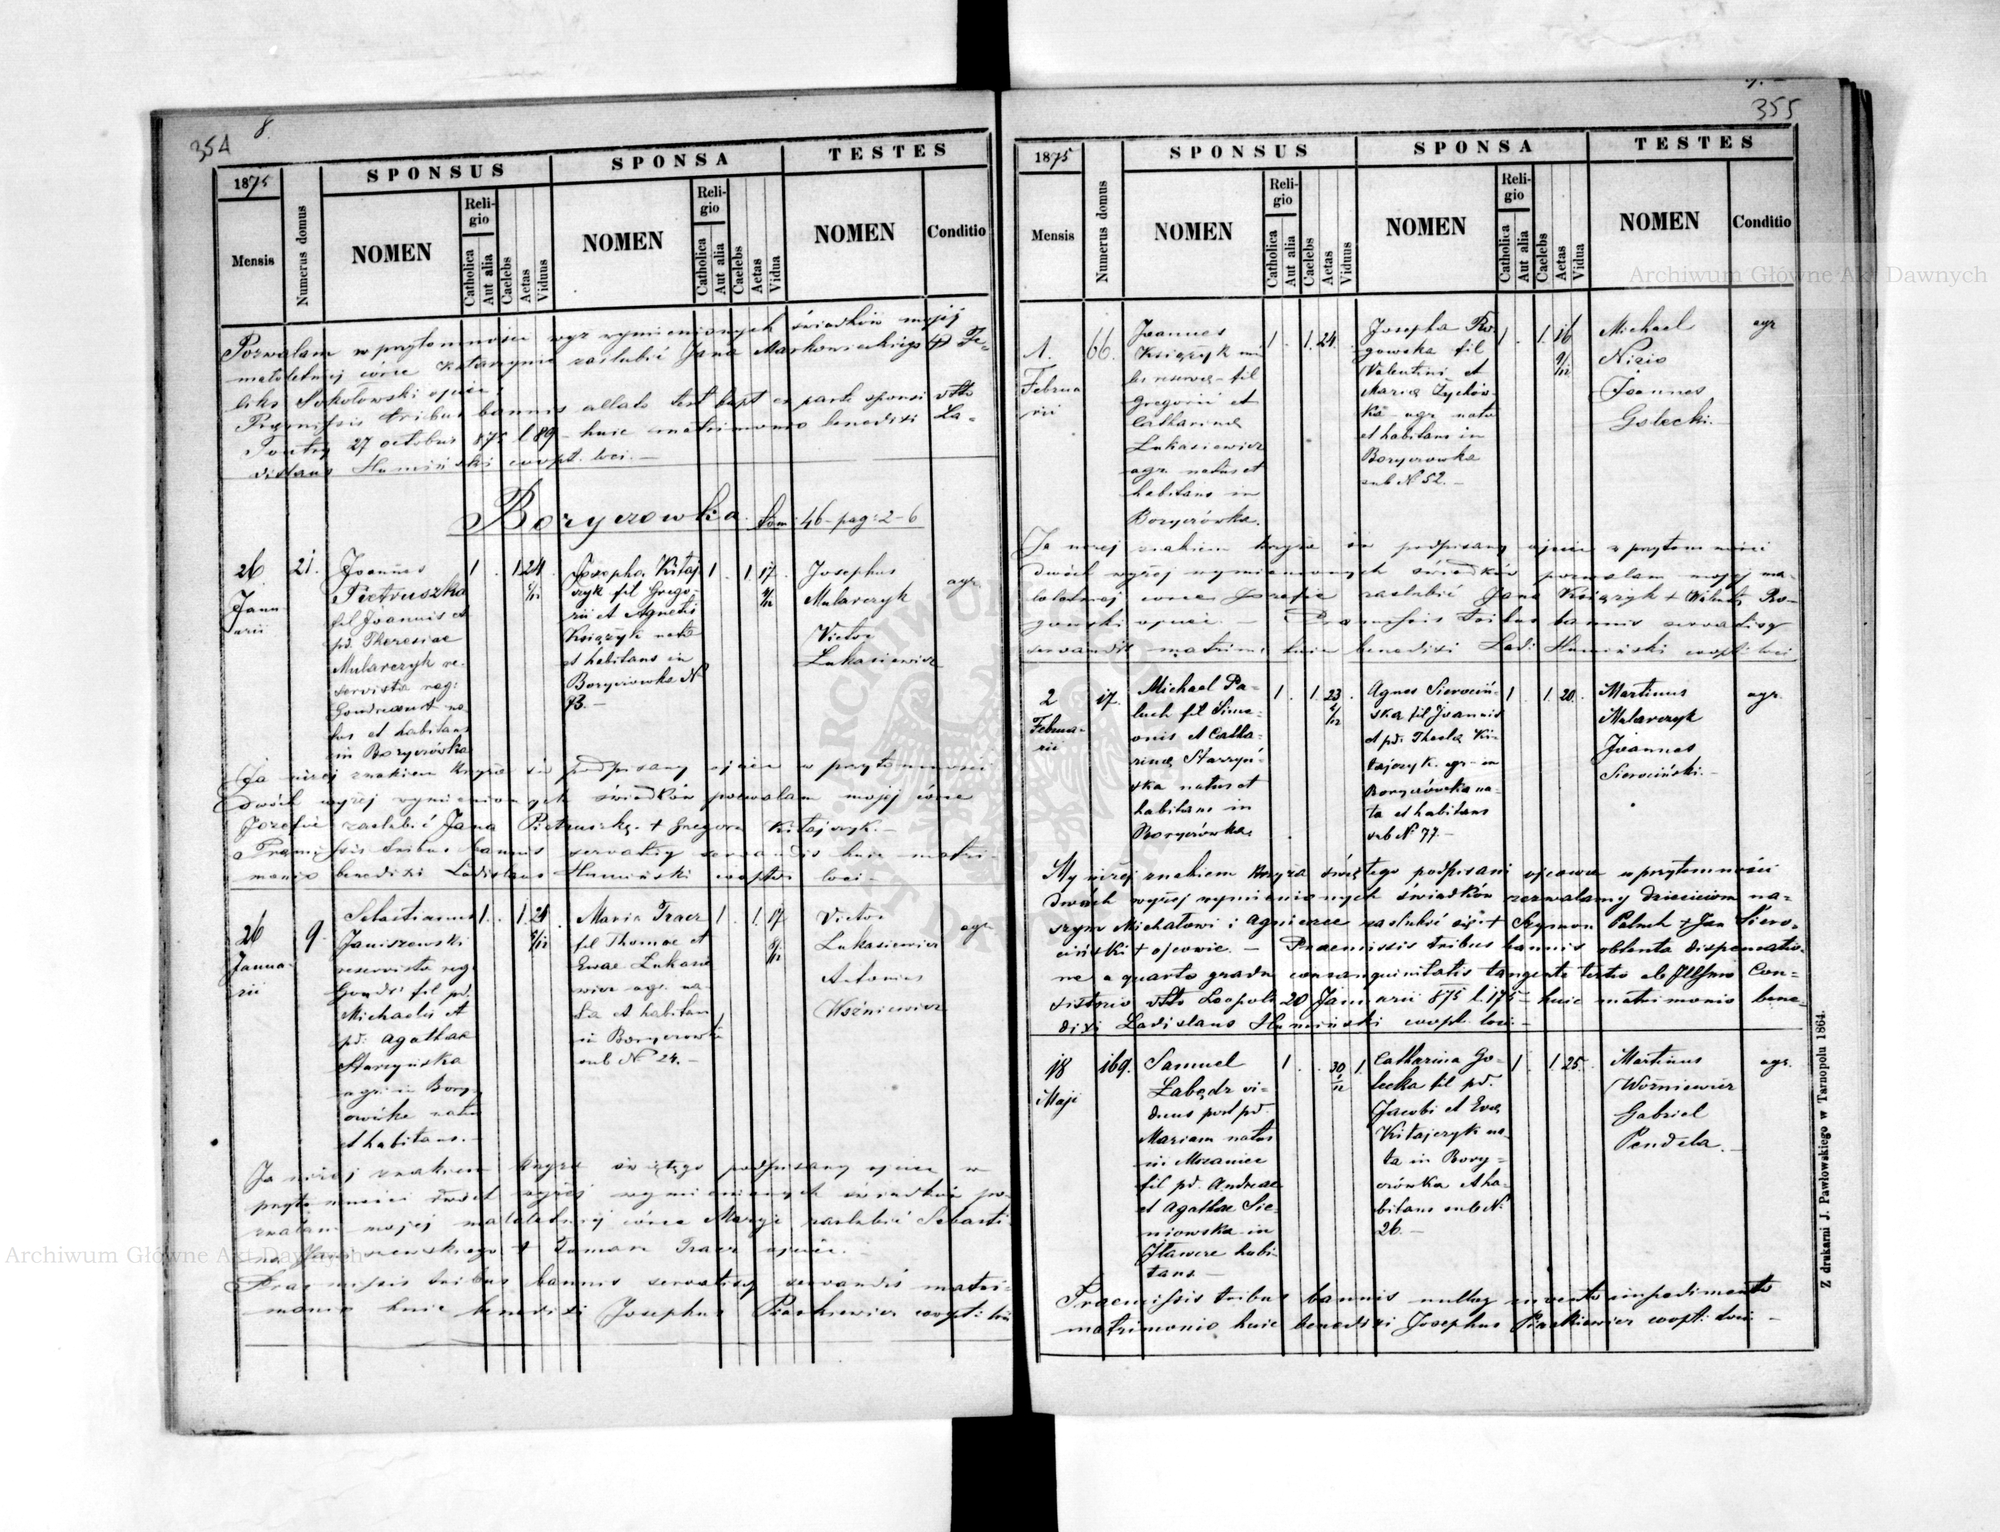 354
8.
1875
SPONSUS
SPONSA
TESTES
Mensis
Numerus domus
NOMEN
Religio
Catholica
Aut alia
Caelebs
Aetas
Viduus
NOMEN
Religio
Catholica
Aut alia
Caelebs
Aetas
Vidua
NOMEN
Conditio
Pozwalam w przytomności wyż wymienionych świadków mojej
małoletniej córce Katarzynie zaślubić Jana Markowieckiego + Fe-
liks Sokołowski ojciec
Praemissis tribus bannis allato test bapt ex parte sponsi dtto
Toutry 27 octobris 875 l. 89 - huic matrimonio benedixi La-
dislaus Humiński coopt. loci. -
Borycrowka. tom: 46 - pag: 2-6
26
Janu-
arii
21.
Joannes
Pietruszka
fil Joannis et
pd. Theresiae
Mularczyk re-
servista reg:
na-
tus et habitans
in Borycrówka
1 . 1. 24
Josepha Kitaj
czyk fil Grego-
rii et Agnetis
Książyk nata
et habitans in
Borycrowka N
73. -
1 . 1. 17
Josephus
Mularczyk
Victor
Lukasiewicz
agr
Ja niżej znakiem krzyża św podpisany ojciec w przytomności
dwóch wyżej wymienionych świadków pozwalam mojej córce
Józefie zaślubić Jana Pietruszkę. + Gregorz Kitajczyk. -
Praemissis tribus bannis servatisq servandis huic matri-
monio benedixi Ladislaus Humiński cooptr loci -
26
Janua-
rii
9.
Sebastianus
Janiszewski
reservista reg.
fil pd.
Michaelis et
pd. Agathae
Starzyńska
agr. in Bory-
crówka natus
et habitans. -
1 . 1. 21
Maria Tracz
fil Thomae et
Evae Lukasie
wicz agr. na-
ta et habitan
in Borycrowka
sub N 24. -
1 . 1. 17
Victor
Lukasiewicz
Antonius
Woźniewicz
agr
Ja niżej znakiem krzyża świętego podpisany ojciec w
przytomności dwóch wyżej wymienionych świadków po-
zwalam mojej małoletniej córce Maryi zaślubić Sebasti-
na Janiszewskiego + Tomasz Tracz ojciec. -
Praemissis tribus bannis servatisq servandis matri-
monio huic benedixi Josephus Piaskiewicz coopt: loci
355
1875
SPONSUS
SPONSA
TESTES
Mensis
Numerus domus
NOMEN
Religio
Catholica
Aut alia
Caelebs
Aetas
Viduus
NOMEN
Religio
Catholica
Aut alia
Caelebs
Aetas
Vidua
NOMEN
Conditio
1.
Februa
rii
66.
Joannes
Książyk mi-
les reserva - fil
Gregorii et
Catharina
Lukasiewicz
agr. natus et
habitans in
Borycrówka.
1 . 1. 24
Josepha Ro-
gowska fil
Valentini et
Maria Zychow-
ka agr nata
et habitans in
Borycrowka
sub N 52. -
1 . 1. 16 9/12
Michael
Nizio
Joannes
Golecki. -
agr
Ja niżej znakiem krzyża św podpisany ojciec w przytomności
dwóch wyżej wymienionych świadków pozwalam mojej ma-
łoletniej córce Józefie zaślubić Jana Książyk + Walenty Ro-
gowski ojciec. - Praemissis tribus bannis servatisq
servandis matrim: huic benedixi Ladi Humiński coopt: loci
2
Februa-
rii
17.
Michael Pa-
luch fil Sime-
onis et Catha-
rina Starzyń-
ska natus et
habitans in
Borycrówka
1 . 1. 23
Agnes Sierociń-
ska fil Joannis
et pd. Thecla Ki-
tajczyk. agr- in
Borycrówka na-
ta et habitans
sub N 77. -
1 1. 20.
Martinus
Mularczyk
Joannes
Sierociński. -
agr.
My niżej znakiem krzyża świętego podpisani ojcowie w przytomności
dwóch wyżej wymienionych świadków zezwalamy dzieciom na-
szym Michałowi i Agnieszce zaślubić się + Szymon Paluch + Jan Siero-
ciński + ojcowie. - Praemissis tribus bannis obtenta dispensatio-
ne a quarto gradu consanguinitatis tangente tertio ab Illssmo Con-
sistorio dtto Leopoli 20 Januarii 875 l. 175 - huic matrimonio bene-
dixi Ladislaus Humiński coopt: loci. -
18
Maji
169.
Samuel
Łabędz vi-
duus post pd.
Mariam natus
in Mszaniec
fil pd. Andreae
et Agathae Sie-
niowska in
Iławcze habi-
tans -
1 . . 30 1/12 1.
Catharina Go-
lecka fil pd.
Jacobi et Eva
Kitajczyk na-
ta in Bory-
crówka et ha-
bitans sub N
26. -
1 . 1. 25.
Martinus
Woźniewicz
Gabriel
Pendela. -
agr.
Praemissis tribus bannis nulloq invento impedimento
matrimonio huic benedixi Josephus Piaskiewicz coopt: loci. -
Z drukarni J. Pawłowskiego w Tarnopolu 1864.
Archiwum Główne Akt Dawnych
Archiwum Główne Akt Dawnych